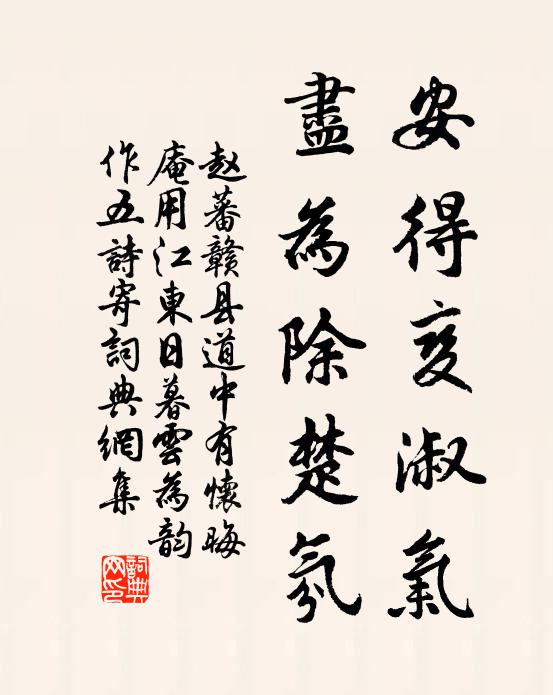 安得变淑氣
盡為除楚氛
赵蕃赣县道中有懷晦
庵用江東日暮雲為韵
作五詩寄詞典網集
詞典网印